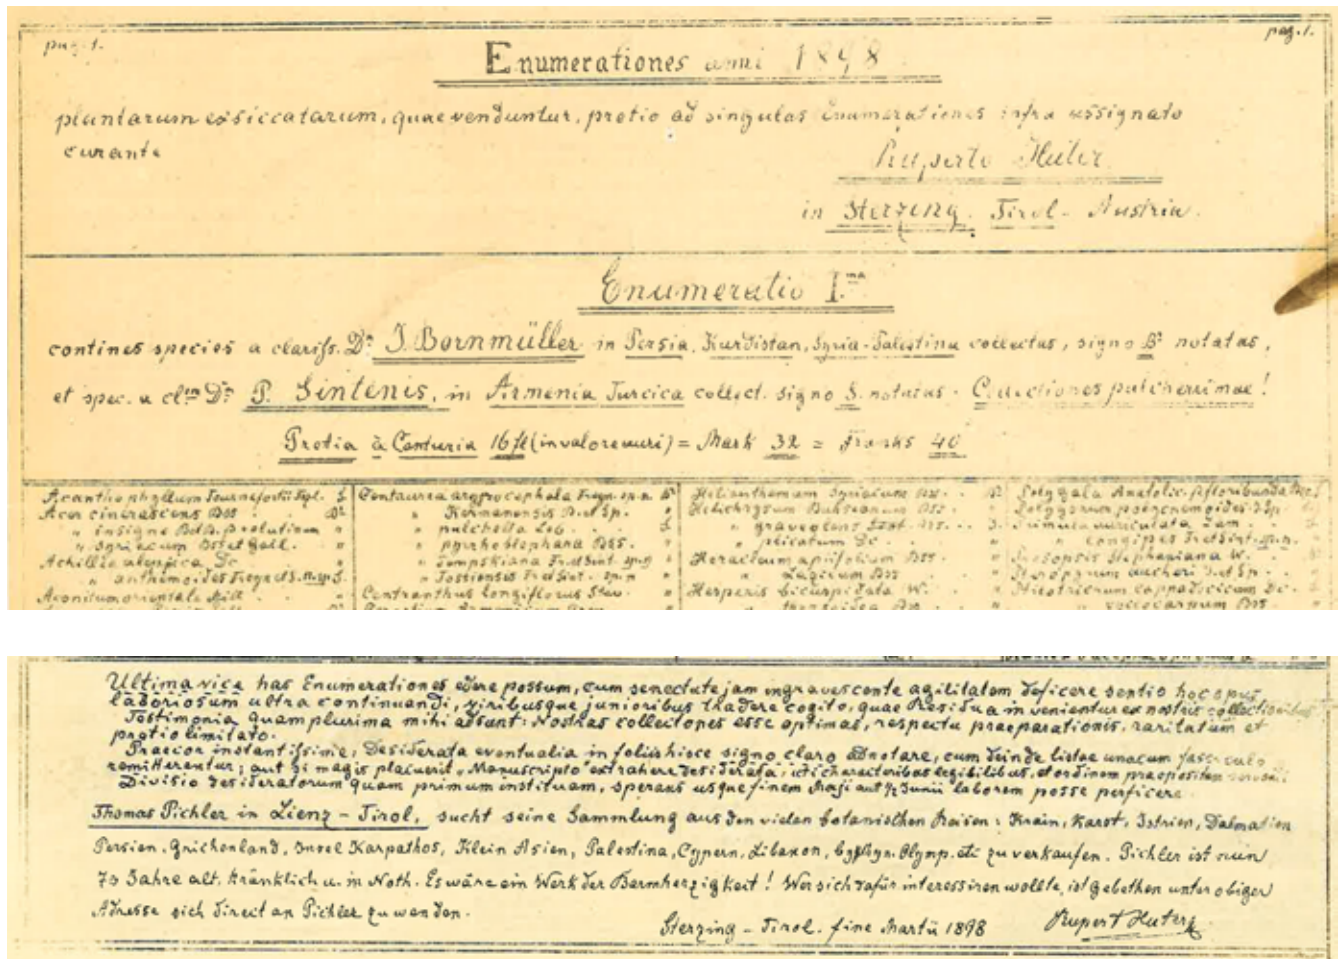 pag. 1.
pag. 1.
Enumerationes anni 1898
plantarum exsiccatarum, quae venduntur, pretio ad singulas Enumerationes infra assignato
curante
Ruperto Huter
in Sterzing. Tirol - Austria.
Enumeratio I.ma
contines species a clariss. Dre J. Bornmüller in Persia, Kurdistan, Syria-Palestina collectas, signo B. notatas,
et spec. a clmo Dre P. Sintenis, in Armenia Turcica collect. signo S. notatas - Collectiones pulcherrimae!
Pretia à Centuria 16 fl (in valore euri) = Mark 32 = Franks 40
Acantho phyllum Tournefortii
Acer cinerascens Bss
" insigne
" syriacum Bss et Gaill.
Achillea aleppica Dc
" anthemoides
Aconitum orientale Mill
Centaurea argyrocephala Freyn. sp. n.
" Kermanensis
" pulchella Led.
" pyrrhoblephara Bss.
" Tempskiana Fr. et Sint. sp. n
" Tossiensis Fr et Sint. sp. n
Centranthus longiflorus Stev.
Helianthemum Syriacum
Helichrysum
" graveolens
" plicatum Dc
Heracleum apiifolium Bss
" Lazicum Bss
Hesperis bicuspidata W.
Polygala Anatolic.
Polygonum
Primula auriculata Lam.
" longipes Fr et Sint. sp. n.
Prosopis Stephaniana W.
Pteropyrum aucheri
cappadocicum Dc.
Ultima vice has Enumerationes edere possum, cum senectute jam ingravescente agilitatem deficere sentio hoc opus
laboriosum ultra continuandi, viribusque junioribus tradere cogito, quae Residua invenientur ex nostris collectionibus
Testimonia quam plurima mihi adsunt: Nostras collectiones esse optimas, respectu praeparationis, raritatum et
pretio limitato.
Praecor instantissime, Desiderata eventualia in foliis hisce signo claro adnotare, cum deinde listae una cum fasciculo
remitterentur; aut si magis placuerit, Manuscripto extrahere desiderata, uti characteribus legibilibus, et ordinem praepositum
Divisio desideratorum quam primum instituam, sperans usque finem Maji aut ½ Junii laborem posse perficere.
Thomas Pichler in Lienz - Tirol, sucht seine Sammlung aus den vielen botanischen Reisen: Krain, Karst, Istrien, Dalmatien
Persien, Grichenland, Insel Karpathos, Klein Asien, Palestina, Cypern, Libanon, Olymp. etc zu verkaufen. Pichler ist nun
70 Jahre alt, kränklich u. in Noth. Es wäre ein Werk der Barmherzigkeit! Wer sich dafür interessiren wollte, ist gebethen unter obiger
Adresse sich direct an Pichler zu wenden.
Sterzing - Tirol. fine Martii 1898 Rupert Huter